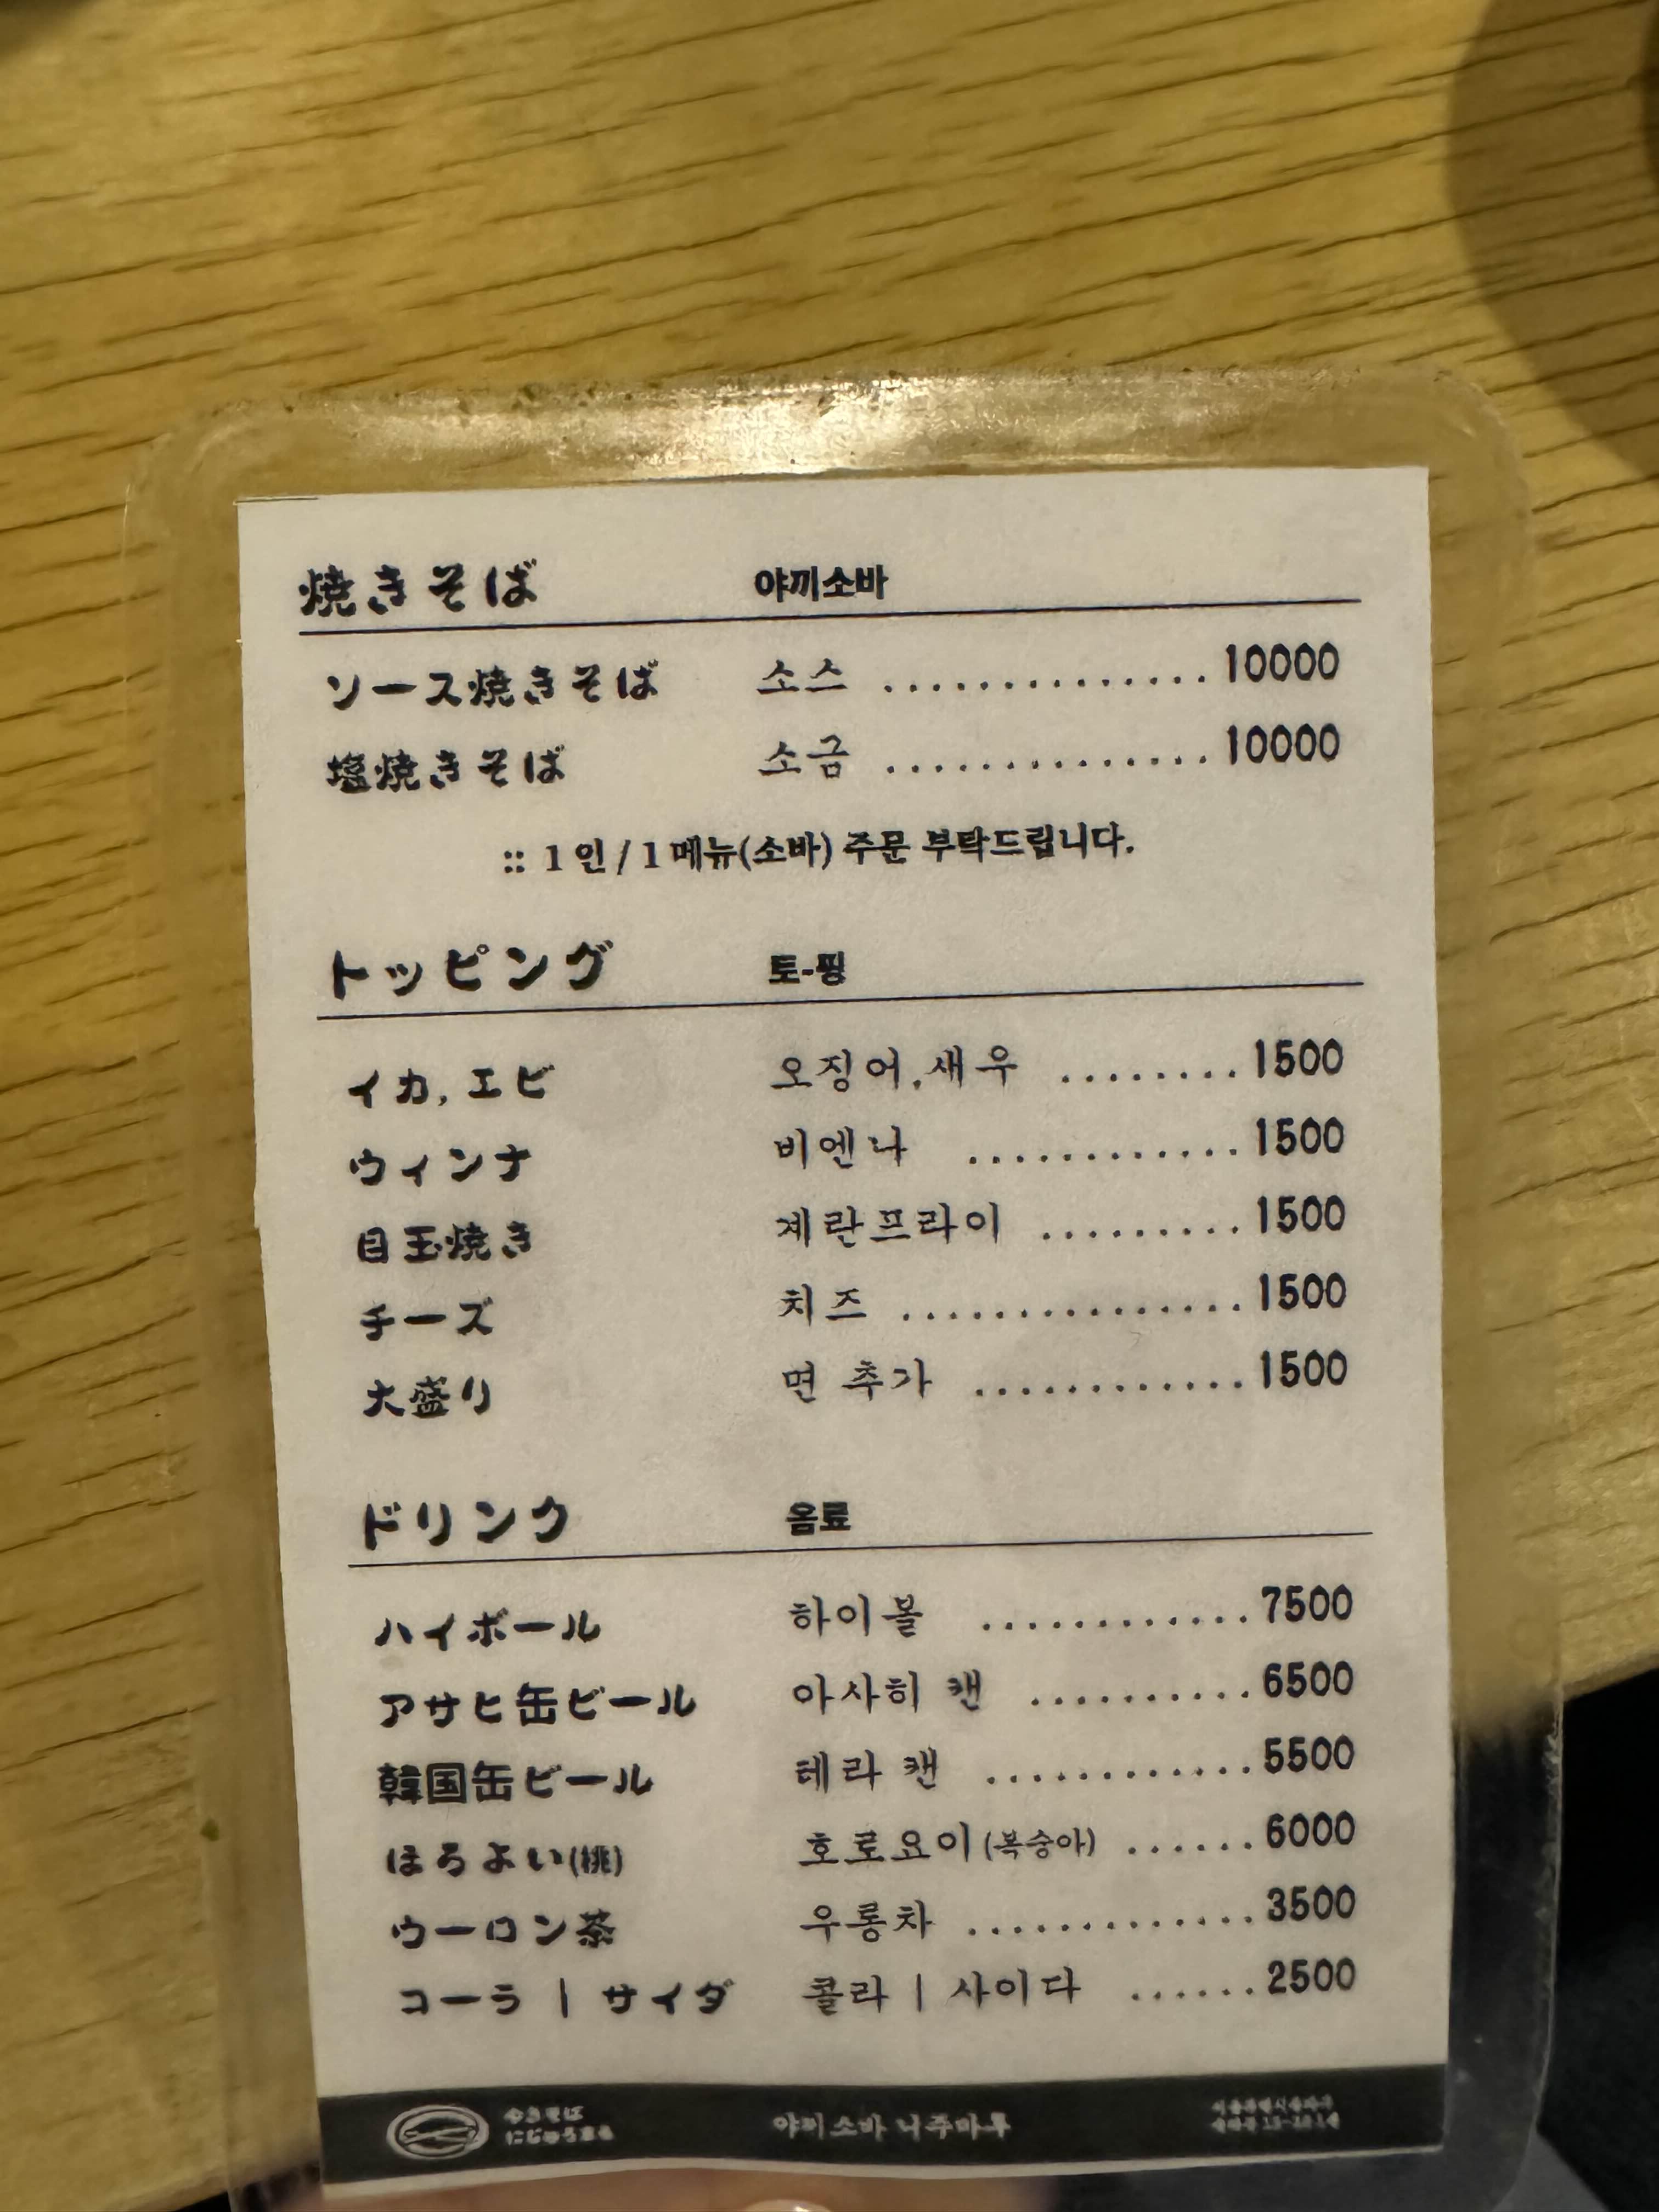 焼きそば 야끼소바
ソース焼きそば 소스 .............. 10000
塩焼きそば 소금 .............. 10000
:: 1인/1메뉴(소바) 주문 부탁드립니다.
トッピング 토-핑
イカ, エビ 오징어,새우 ........ 1500
ウィンナ 비엔나 ............ 1500
目玉焼き 계란프라이 ......... 1500
チーズ 치즈 ............... 1500
大盛り 면 추가 ............ 1500
ドリンク 음료
ハイボール 하이볼 ............ 7500
アサヒ缶ビール 아사히 캔 .......... 6500
韓国缶ビール 테라 캔 ............ 5500
ほろよい(桃) 호로요이(복숭아) ...... 6000
ウーロン茶 우롱차 ............. 3500
コーラ | サイダ 콜라 | 사이다 ...... 2500
やきそば
にじゅうまる
야끼소바 니주마루